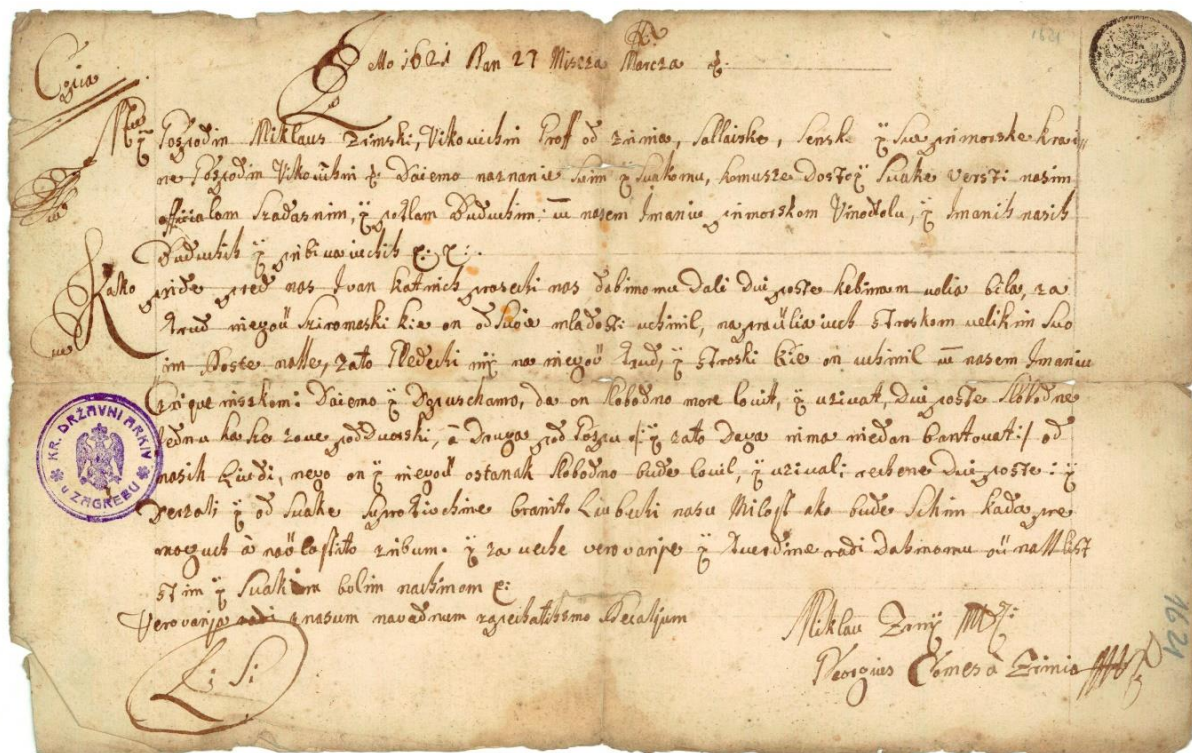 Copia
Lto 1621 Dan 27 Miseza Marcza &.
1621
My Gospodin Miklaus Zrinski, Vikovichni Groff od Zrinia, Sallaiske, Senske ÿ Sve primorske krai=
ne Gospodin Vikovichni &. Daiemo naznanie Svim ÿ Svakomu, komusze Dostoÿ Svake versti nasim
officialom Szadasnim, ÿ potlam Buduchim; u nasem Imaniu primorskom Vinodolu, ÿ Imanih nasih
Buduchih ÿ pribivaiuchih &: &:
Kakko pride pred nas Ivan Katnich prosechi nas dabimomu Dali Dvi poste kebimam volia bila, za
trud niegov Sziromaski kie on od Svoie mladosti uchinil, napravliaiuch stroskom velikim Svo
im Poste nasse, zato Gledechi mÿ na niegov trud, ÿ stroski kie on uchinil u nasem Imaniu
Czriqueniskom: Daiemo ÿ Dopuschamo, da on slobodno more lovit, ÿ uzivat, Dvi poste Slobodne
Jednu kasze zove podDvorski, à Druga pod ÿ zato Dega nima niedan bantovati :/ od
nasih Liudi, nego on ÿ niegov ostanak slobodno bude lovil, ÿ uzival: rechene Dvi poste: ÿ
Derzati ÿ od Svake suprotivchine branit. Liubechi nasu Milost ako bude Schim kada pre
moguch à navlastito ribum. ÿ za veche verovanje ÿ tverdine radi Dasmomu ov nass List
S tim ÿ Svakim bolim nachinom &:
Verovanja radi znasum navadnum zapechatissmo Pecatjum
Miklau Zrinÿ
Georgius Comes à Zrinio
L: S:
KR. DRŽAVNI ARKIV
U ZAGREBU
1621